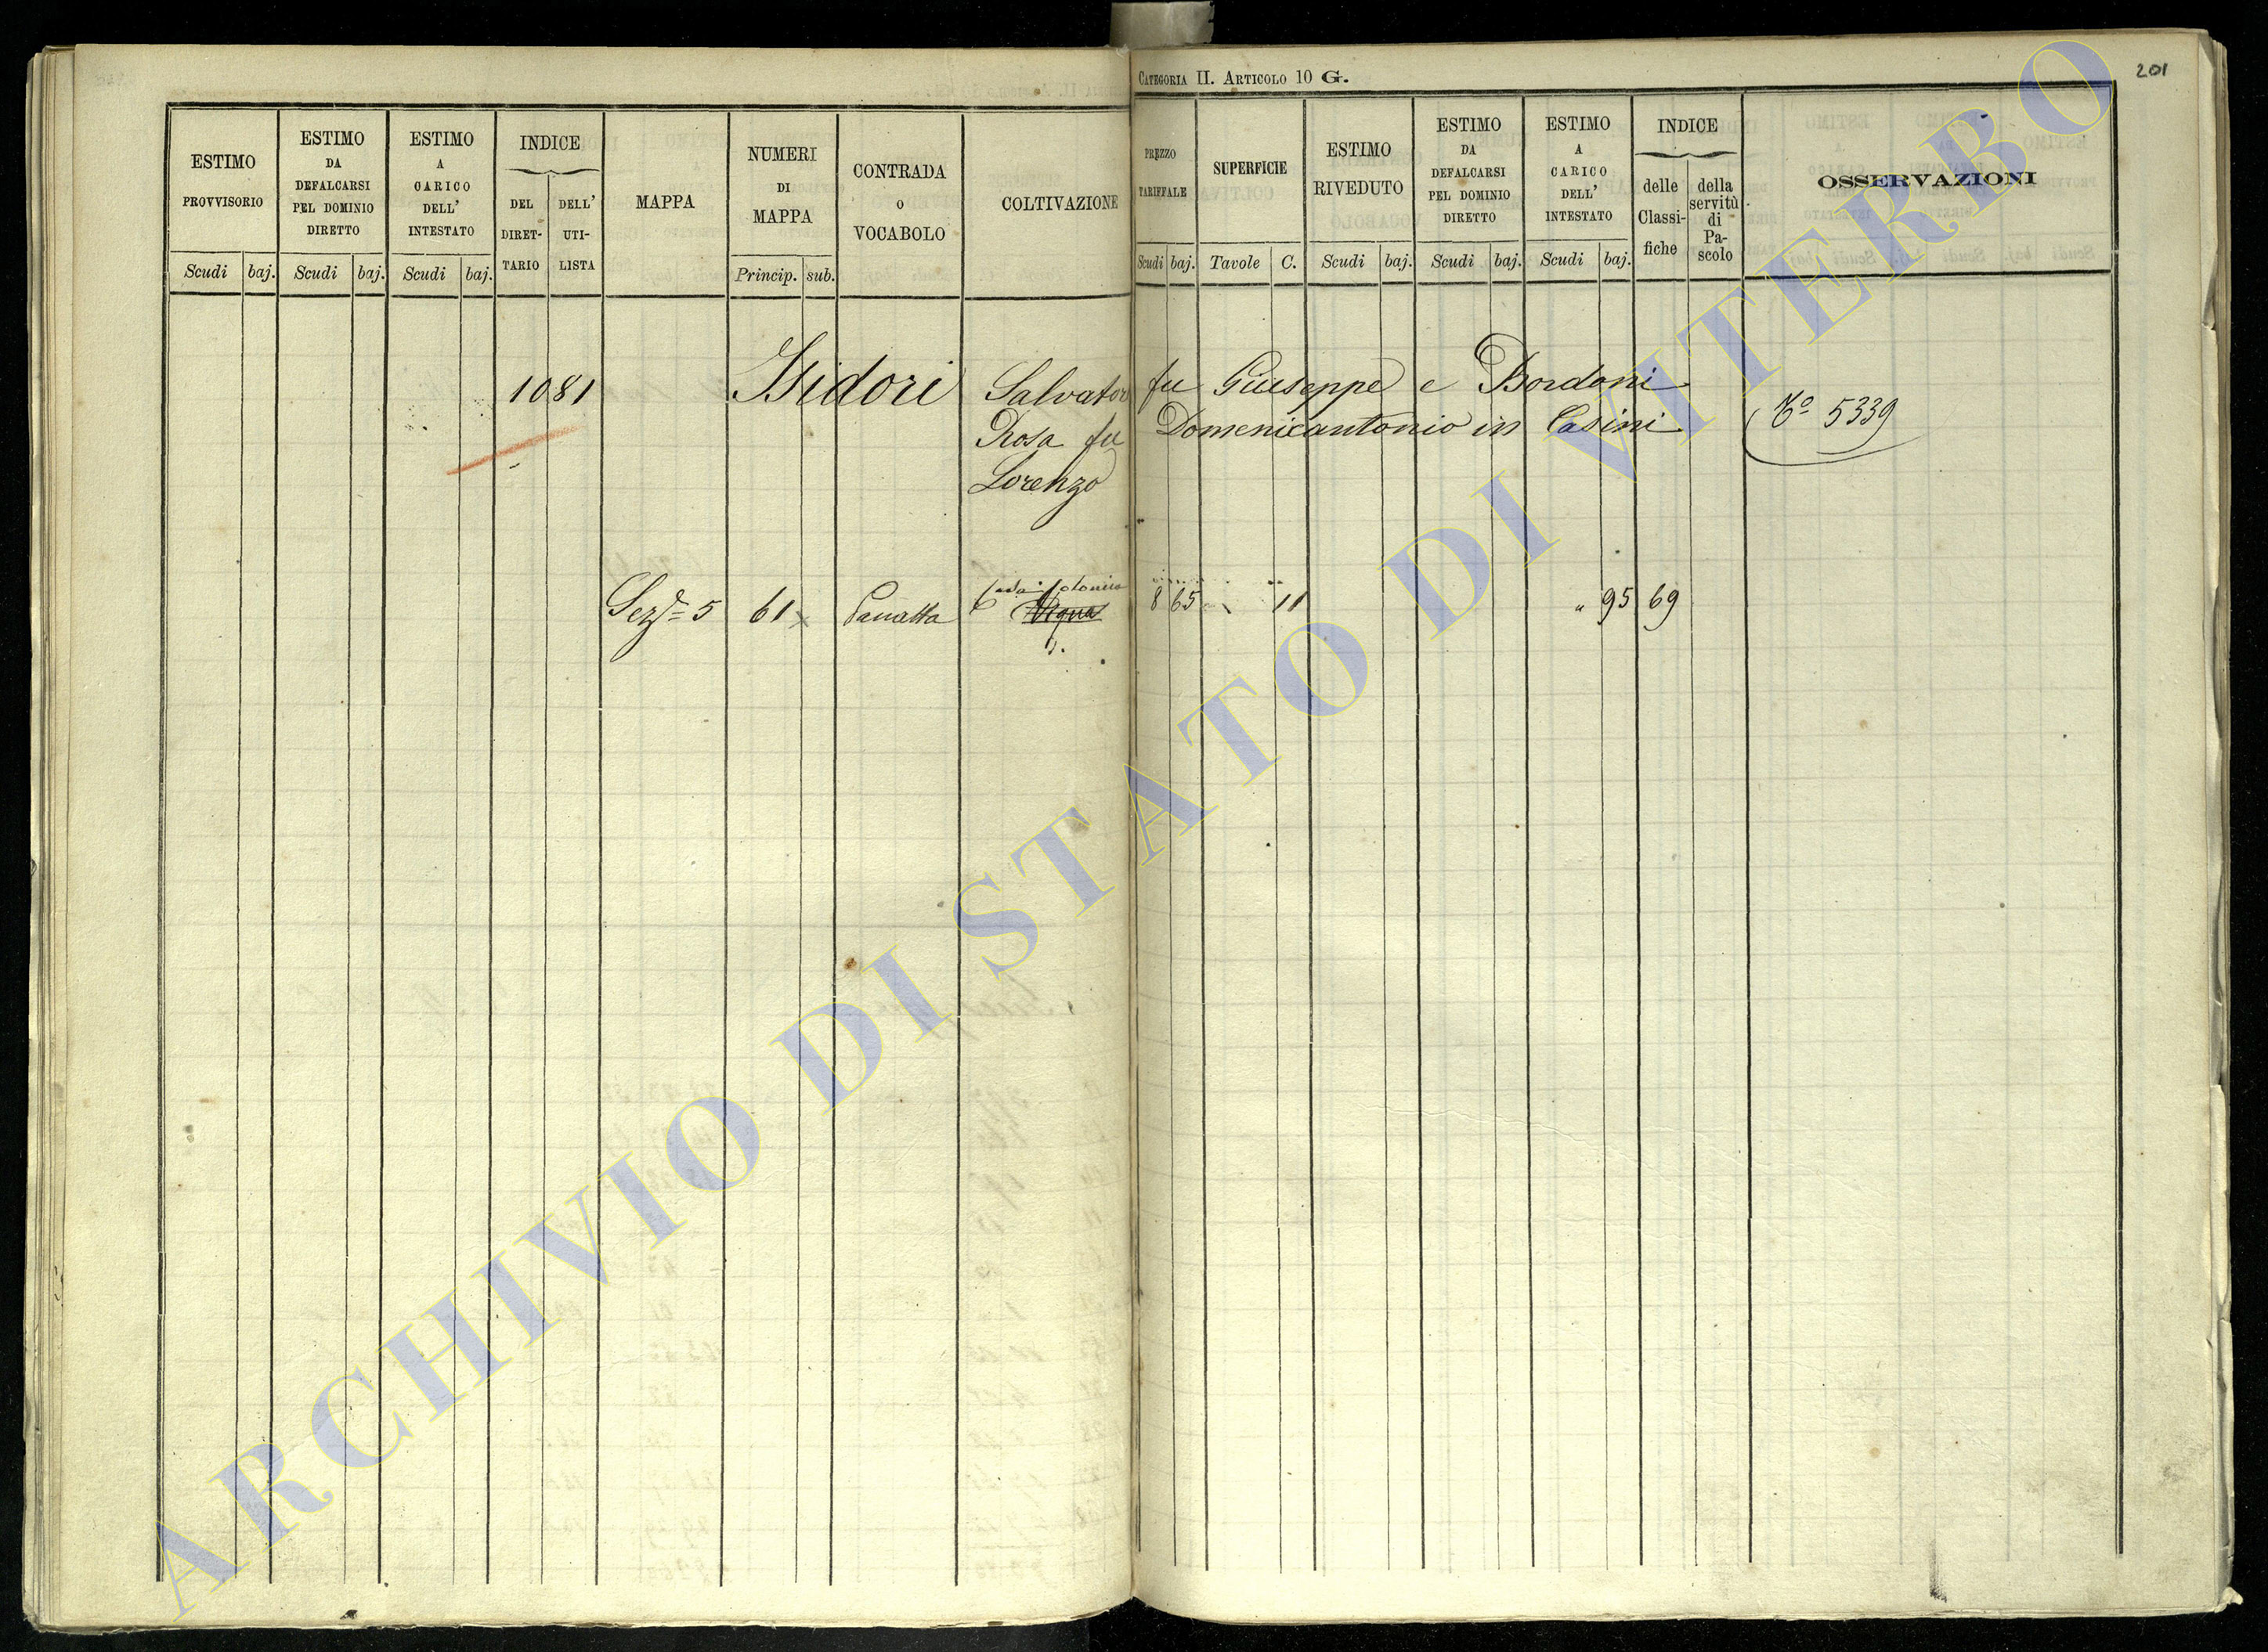 CATEGORIA II. ARTICOLO 10 G.
201
ESTIMO PROVVISORIO
Scudi baj.
ESTIMO DA DEFALCARSI PEL DOMINIO DIRETTO
Scudi baj.
ESTIMO A CARICO DELL' INTESTATO
Scudi baj.
INDICE
DEL DIRET-
TARIO
DELL' UTI-
LISTA
MAPPA
NUMERI DI MAPPA
Princip. sub.
CONTRADA O VOCABOLO
COLTIVAZIONE
PREZZO TARIFFALE
Scudi baj.
SUPERFICIE
Tavole C.
ESTIMO RIVEDUTO
Scudi baj.
ESTIMO DA DEFALCARSI PEL DOMINIO DIRETTO
Scudi baj.
ESTIMO A CARICO DELL' INTESTATO
Scudi baj.
INDICE
delle Classi-
fiche
della servitù di Pa-
scolo
OSSERVAZIONI
1081 Isidori Salvator fu Giuseppe e Bordoni
Rosa fu Domenicantonio in Casini
Lorenzo
5339
Sez.e 5 61 8 65 11 " 95 69
Vigna
ARCHIVIO DI STATO DI VITERBO